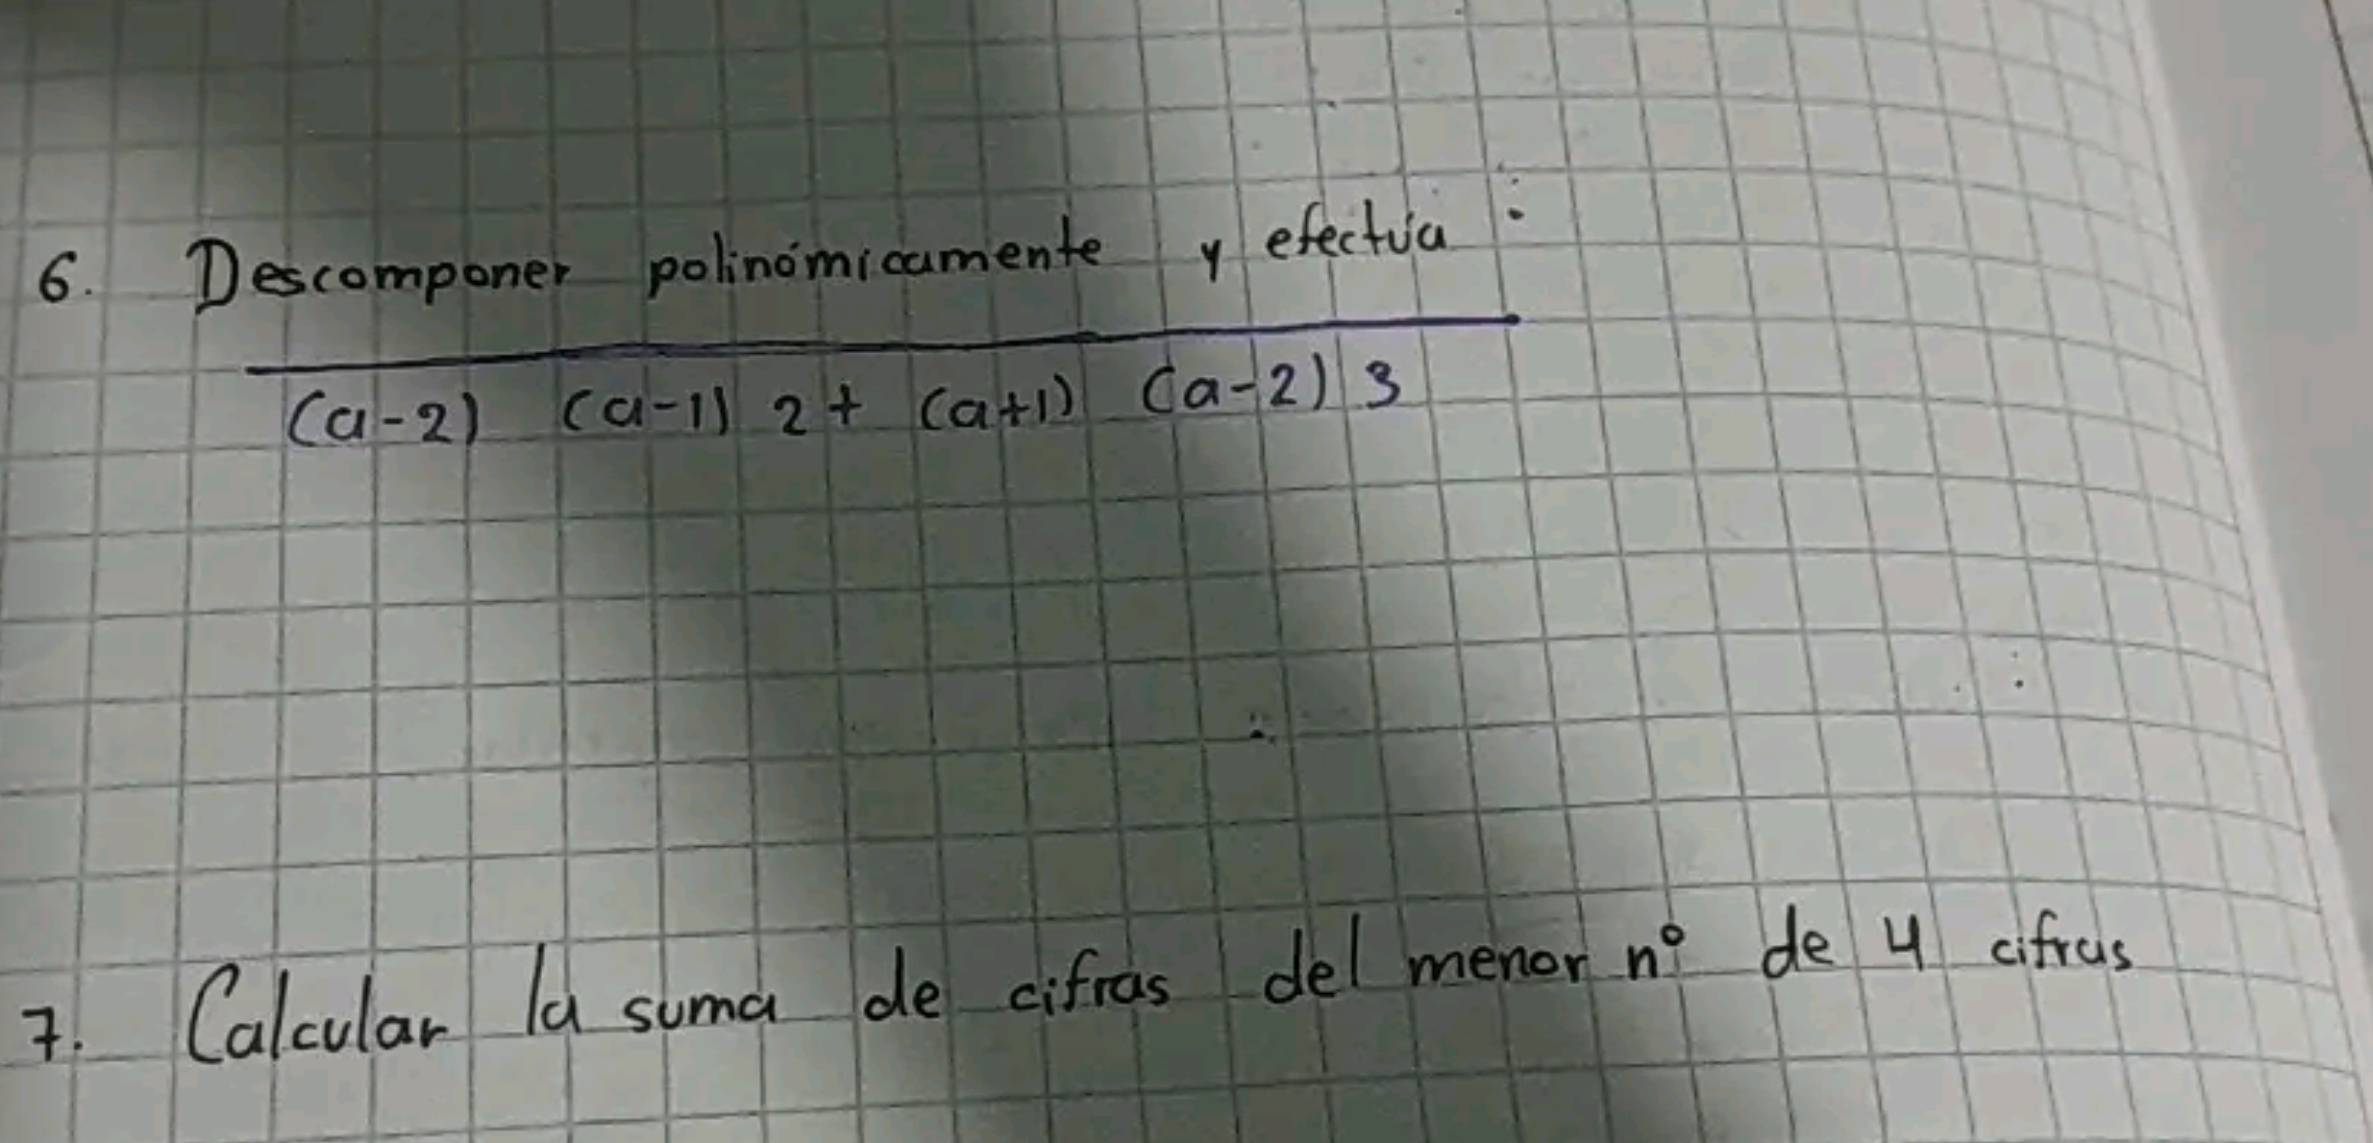 6. Descomponer polinómicamente y efectúa :
(a-2) (a-1) 2 + (a+1) (a-2) 3
7. Calcular la suma de cifras del menor nº de 4 cifras